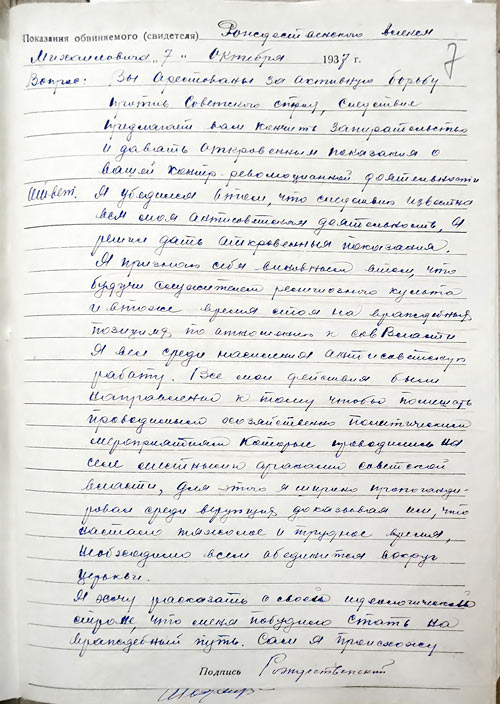 Показания обвиняемого (свидетеля) Рожсдественского Алексея
Михайловича 7 "октября 1937 г.
7
Вопрос: Вы арестованы за активную борьбу
против Советского строя, следствие
предлагает вам кончить запирательство
и давать откровенные показания о
вашей контр-революционной деятельности
Ответ. Я убедился в том, что следствию известна
вся моя антисоветская деятельность, Я
решил дать откровенные показания.
Я признаю себя виновным в том, что
будучи служителем религиозного культа
и в тоже время стоя на враждебных
позициях по отношению к сов Власти
Я вел среди населения антисоветскую
работу. Все мои действия были
направлены к тому чтобы помешать
проводимым хозяйственно политическим
мероприятиям которые проводились на
селе местными органами советской
власти, для этого я широко пропоганди-
ровал среди верующих, доказывая им, что
настало тяжолое и трудное время,
необходимо всем обединится вокруг
церькви.
Я хочу расказать о своей идеологической
строне, что меня побудило стать на
враждебный путь. Сам я происхожу
Подпись Рождественский